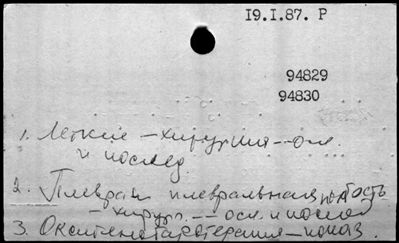 I9.I.87. Р
94829
94830
1. Легкие – хирургия – осл.
и послед.
2. Плевра и плевральная полость
– хирург. – осл. и послед
3. Окситенотаротерапия – показ.